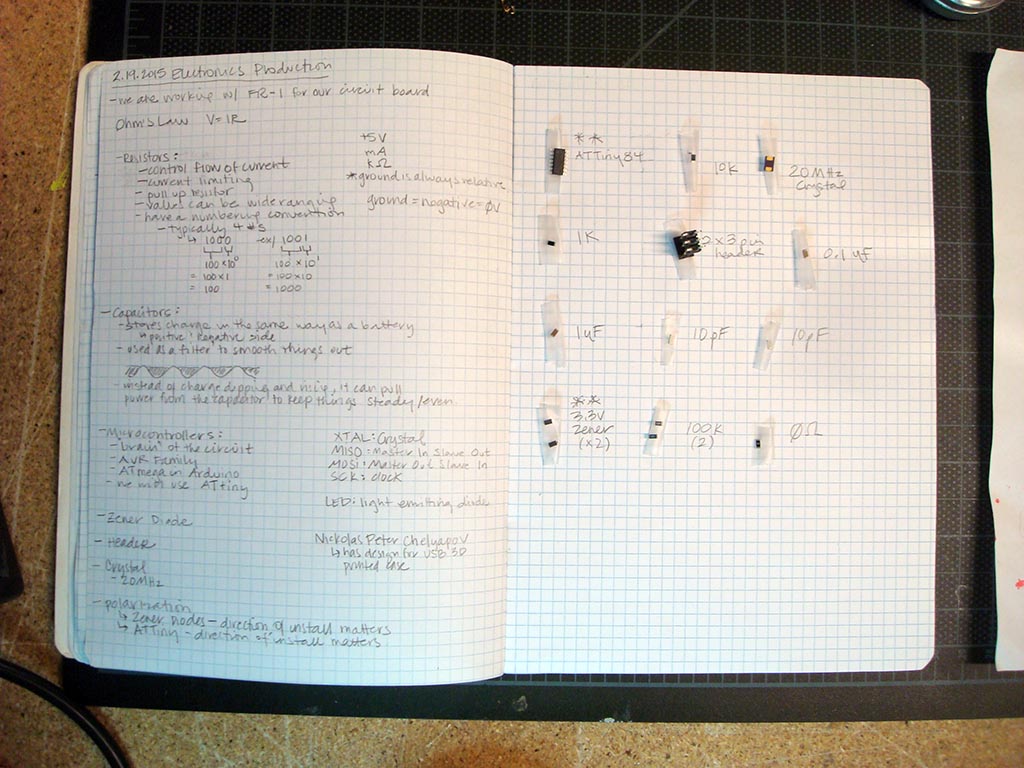 2.19.2015 Electronics Production
- we are working w/ FR-1 for our circuit board
Ohm's Law V=IR
+5V
mA
kΩ
* ground is always relative
ground = negative = ØV
- Resistors:
- control flow of current
- current limiting
- pull up resistor
- values can be wide ranging
- have a numbering convention
- typically 4 #s
↳ 1000 ex/ 1001
100 x 10⁰ 100 x 10¹
= 100 x 1 = 100 x 10
= 100 = 1000
- Capacitors:
- stores charge in the same way as a battery
↳ positive negative side
- used as a filter to smooth things out
- instead of charge dipping and rising, it can pull
power from the capacitor to keep things steady/even.
- Microcontrollers:
- brain of the circuit
- AVR Family
- ATmega in Arduino
- we will use ATtiny
XTAL: Crystal
MISO: Master In Slave Out
MOSI: Master Out Slave In
SCK: clock
LED: light emitting diode
- Zener Diode
- Header
- Crystal
- 20MHz
Nickolas Peter Chelyapov
↳ has design for USB 3D
printed case
- polarization
↳ Zener diodes - direction of install matters
↳ ATTiny - direction of install matters
**
ATTiny84
10K
20MHz
Crystal
1K
2x3 pin
header
0.1 uF
1uF
10pF
10pF
**
3.3V
Zener
(x2)
100K
(2)
ØΩ